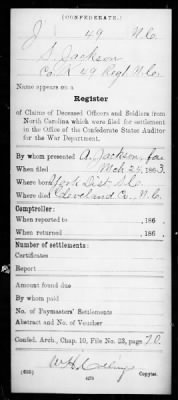 (CONFEDERATE.)
J 49 N.C.
S. Jackson
Co. K 49 Regt. N.C.
Name appears on a
Register
of Claims of Deceased Officers and Soldiers from
North Carolina which were filed for settlement
in the Office of the Confederate States Auditor
for the War Department.
By whom presented A. Jackson, fa
When filed Mch 25, 1863.
Where born York Dist. S.C.
Where died Cleveland Co., N.C.
Comptroller:
When reported to , 186 .
When returned , 186 .
Number of settlements:
Certificates
Report
Amount found due
By whom paid
No. of Paymasters' Settlements
Abstract and No. of Voucher
Confed. Arch., Chap. 10, File No. 23, page 70.
W. H.
(635) Copyist.